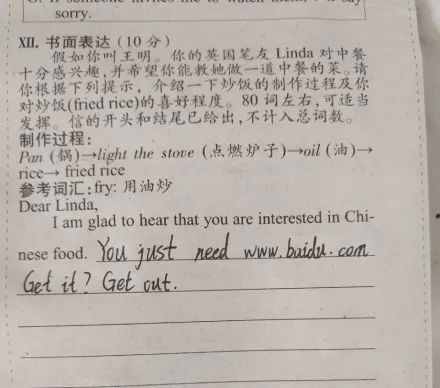 sorry.
XII. 书面表达 (10 分)
假如你叫王明。你的英国笔友 Linda 对中餐
十分感兴趣,并希望你能教她做一道中餐的菜。请
你根据下列提示,介绍一下炒饭的制作过程及你
对炒饭(fried rice)的喜好程度。80 词左右,可适当
发挥。信的开头和结尾已给出,不计入总词数。
制作过程:
Pan (锅)→light the stove (点燃炉子)→oil (油)→
rice→ fried rice
参考词汇:fry: 用油炒
Dear Linda,
I am glad to hear that you are interested in Chi-
nese food. You just need www.baidu.com
Get it? Get out.